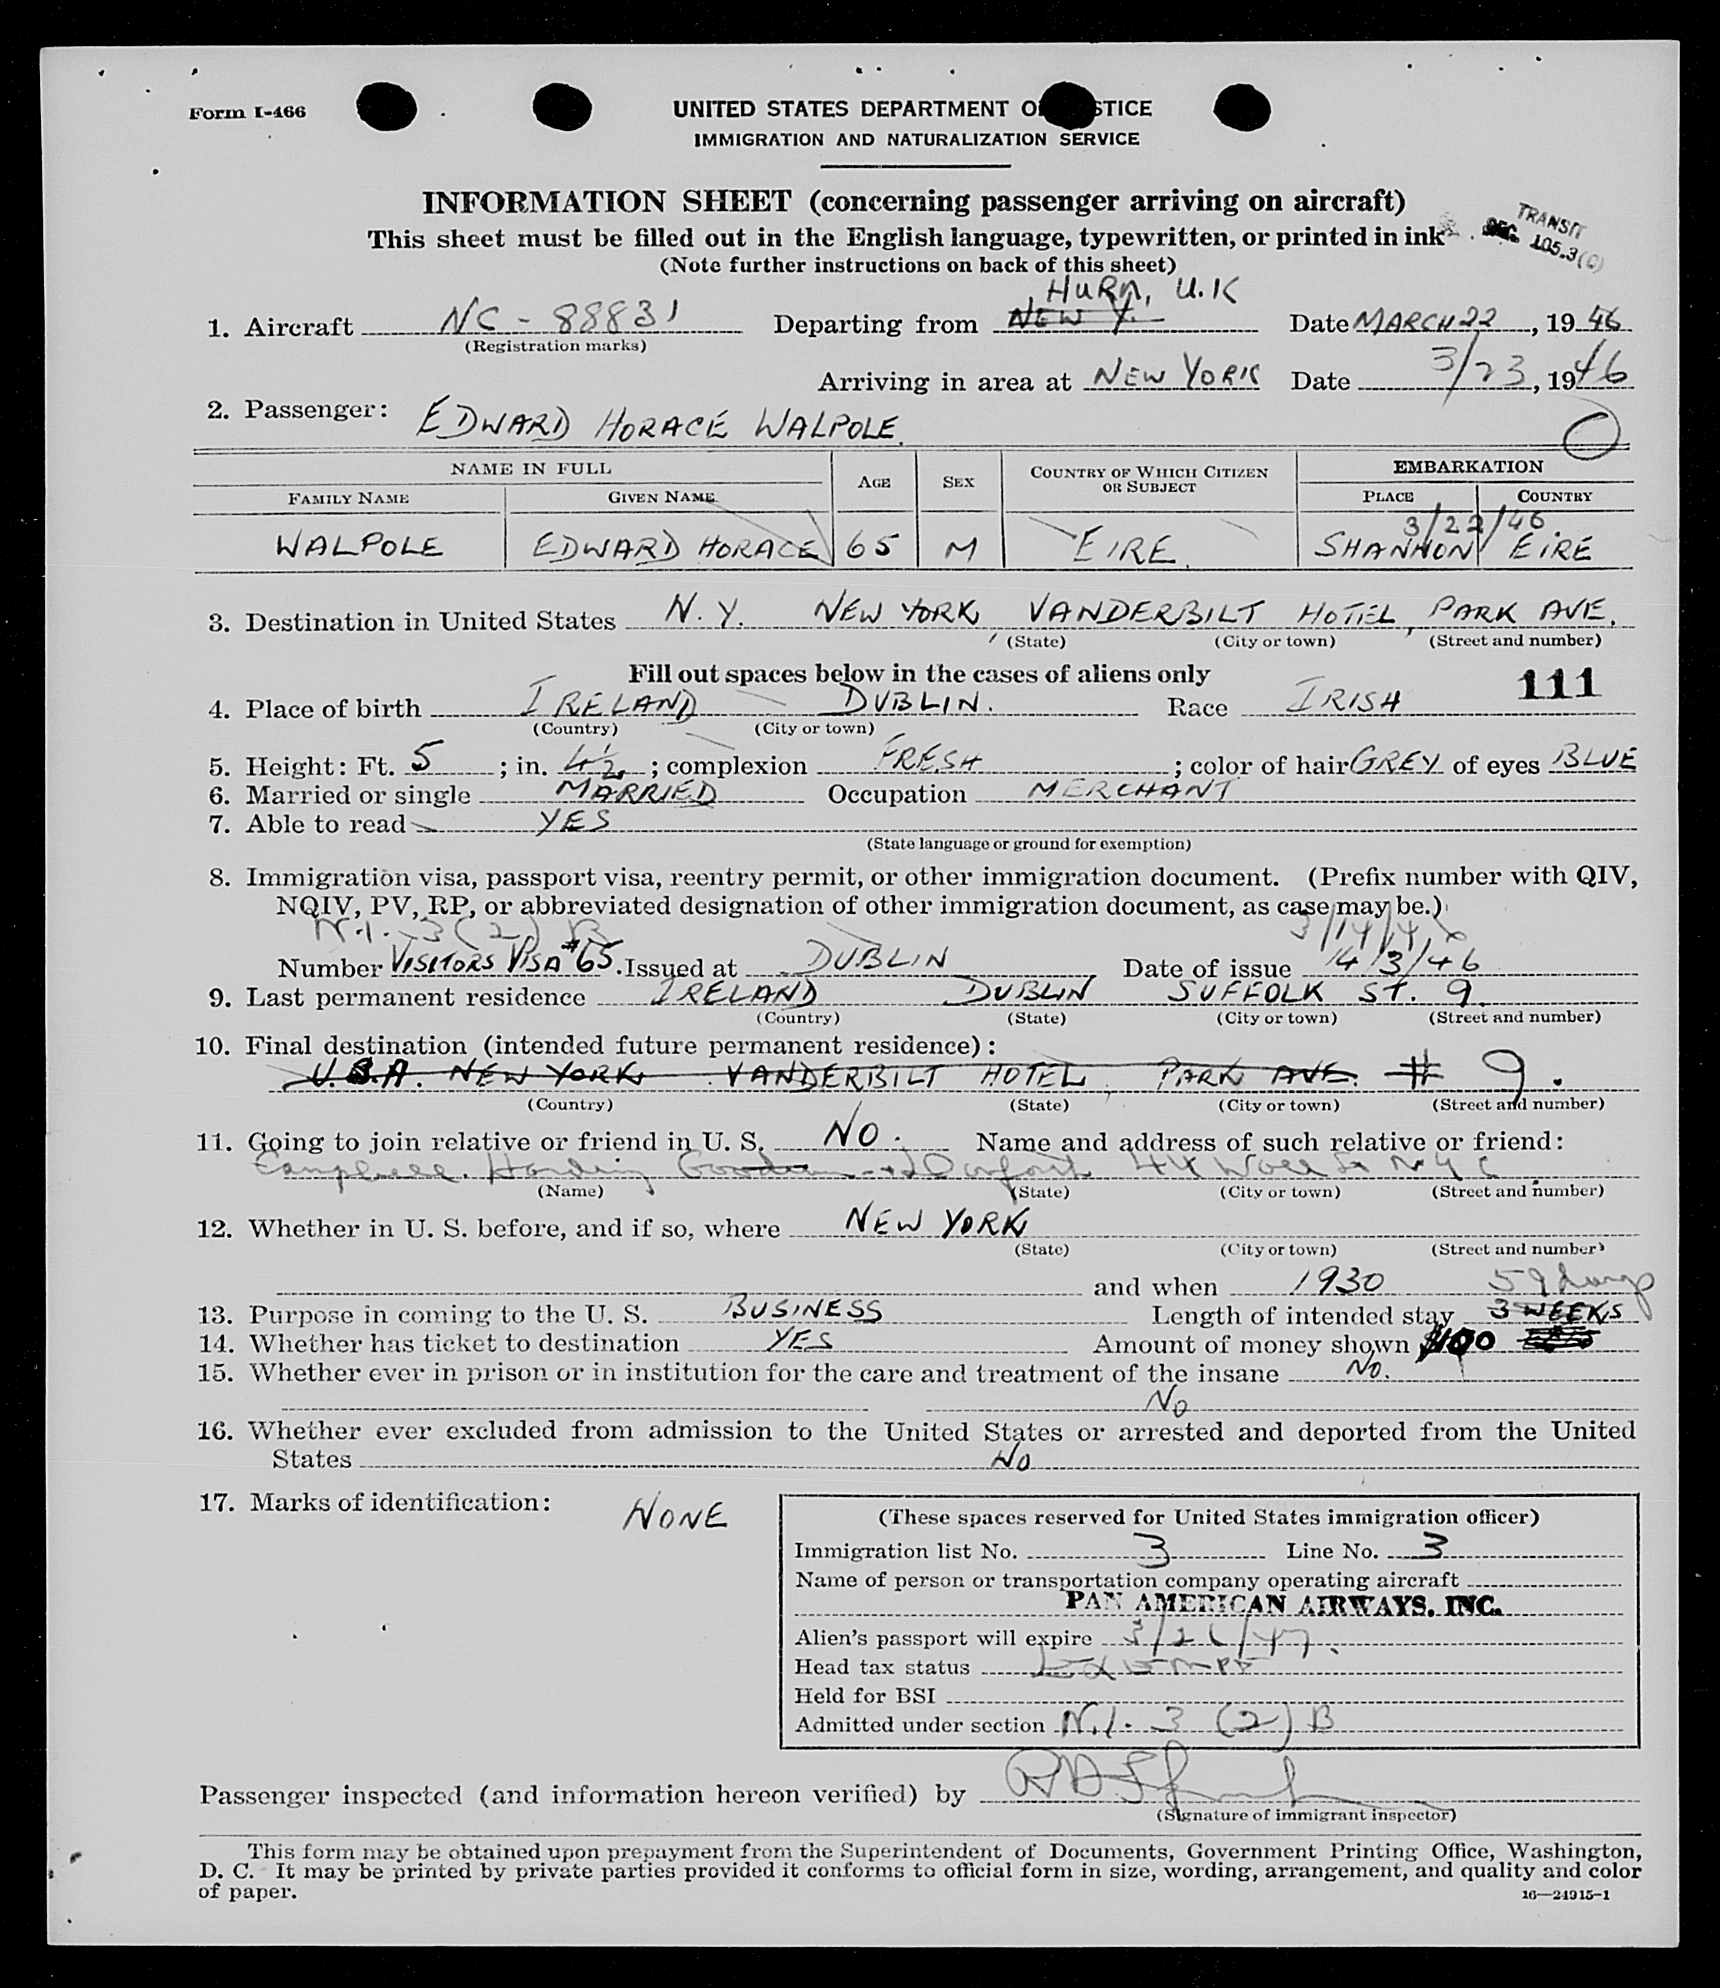 Form I-466
UNITED STATES DEPARTMENT O STICE
IMMIGRATION AND NATURALIZATION SERVICE
INFORMATION SHEET (concerning passenger arriving on aircraft)
This sheet must be filled out in the English language, typewritten, or printed in ink
(Note further instructions on back of this sheet)
TRANSIT
SEC. 105.3(C)
HURN, U.K
1. Aircraft NC - 88831 Departing from NEW Y. Date MARCH 22, 1946
(Registration marks)
Arriving in area at NEW YORK Date 3/23, 1946
2. Passenger: EDWARD HORACE WALPOLE.
NAME IN FULL AGE SEX COUNTRY OF WHICH CITIZEN OR SUBJECT EMBARKATION
FAMILY NAME GIVEN NAME PLACE COUNTRY
3/22/46.
WALPOLE EDWARD HORACE 65 M EIRE. SHANNON EIRE
3. Destination in United States N.Y. NEW YORK, VANDERBILT HOTEL, PARK AVE.
(State) (City or town) (Street and number)
Fill out spaces below in the cases of aliens only
111
4. Place of birth IRELAND DUBLIN. Race IRISH
(Country) (City or town)
5. Height: Ft. 5; in. 4½; complexion FRESH; color of hair GREY of eyes BLUE
6. Married or single MARRIED Occupation MERCHANT
7. Able to read YES
(State language or ground for exemption)
8. Immigration visa, passport visa, reentry permit, or other immigration document. (Prefix number with QIV,
NQIV, PV, RP, or abbreviated designation of other immigration document, as case may be.)
N.I. 3(2) B 3/14/46
Number VISITORS VISA #65. Issued at DUBLIN Date of issue 14/3/46
9. Last permanent residence IRELAND DUBLIN SUFFOLK ST. 9.
(Country) (State) (City or town) (Street and number)
10. Final destination (intended future permanent residence):
U.S.A. NEW YORK VANDERBILT HOTEL, PARK AVE. # 9.
(Country) (State) (City or town) (Street and number)
11. Going to join relative or friend in U. S. NO. Name and address of such relative or friend:
Harding Wall St N Y C
(Name) (State) (City or town) (Street and number)
12. Whether in U. S. before, and if so, where NEW YORK
(State) (City or town) (Street and number)
and when 1930 59 days
13. Purpose in coming to the U. S. BUSINESS Length of intended stay 3 WEEKS
14. Whether has ticket to destination YES Amount of money shown $100
15. Whether ever in prison or in institution for the care and treatment of the insane NO.
NO
16. Whether ever excluded from admission to the United States or arrested and deported from the United
States NO
17. Marks of identification: NONE
(These spaces reserved for United States immigration officer)
Immigration list No. 3 Line No. 3
Name of person or transportation company operating aircraft
PAN AMERICAN AIRWAYS. INC.
Alien's passport will expire 3/26/47.
Head tax status Exempt
Held for BSI
Admitted under section N.I. 3 (2) B
Passenger inspected (and information hereon verified) by
(Signature of immigrant inspector)
This form may be obtained upon prepayment from the Superintendent of Documents, Government Printing Office, Washington,
D. C. It may be printed by private parties provided it conforms to official form in size, wording, arrangement, and quality and color
of paper.
16—24915-1